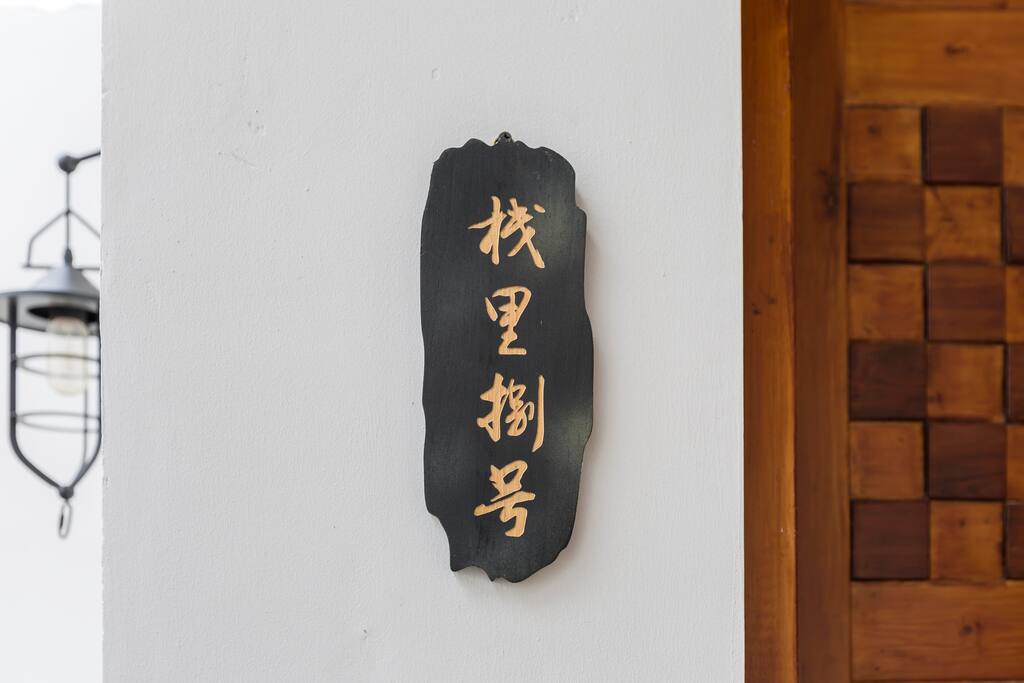 栈里捌号